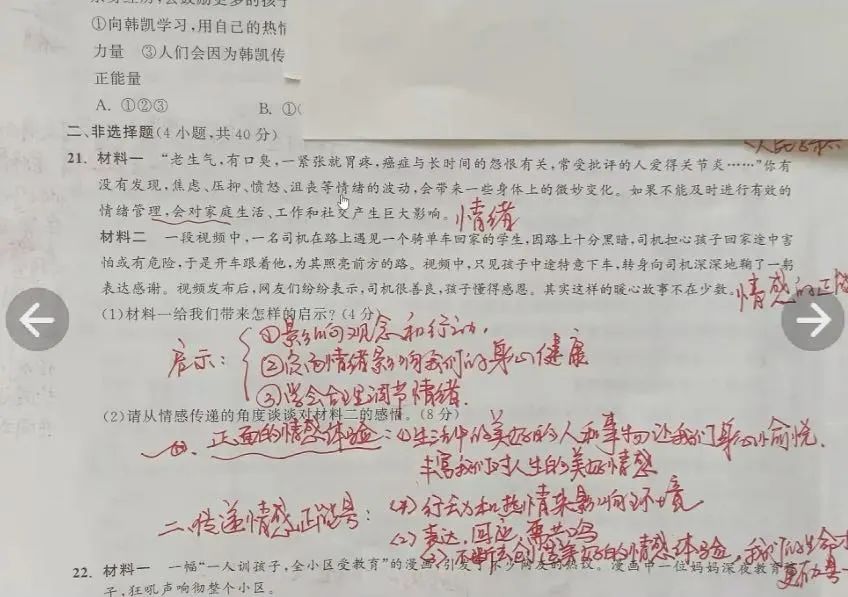 ①向韩凯学习,用自己的热情
力量 ③人们会因为韩凯传
正能量
A. ①②③ B. ①
二、非选择题(4小题,共40分)
21. 材料一 “老生气,有口臭,一紧张就胃疼,癌症与长时间的怨恨有关,常受批评的人爱得关节炎……”你有
没有发现,焦虑、压抑、愤怒、沮丧等情绪的波动,会带来一些身体上的微妙变化。如果不能及时进行有效的
情绪管理,会对家庭生活、工作和社交产生巨大影响。 情绪
材料二 一段视频中,一名司机在路上遇见一个骑单车回家的学生,因路上十分黑暗,司机担心孩子回家途中害
怕或有危险,于是开车跟着他,为其照亮前方的路。视频中,只见孩子中途特意下车,转身向司机深深地鞠了一躬
表达感谢。视频发布后,网友们纷纷表示,司机很善良,孩子懂得感恩。其实这样的暖心故事不在少数。 情感的正
(1)材料一给我们带来怎样的启示?(4分)
启示:
①影响观念和行动.
②负面情绪影响我们的身心健康
③学会合理调节情绪.
(2)请从情感传递的角度谈谈对材料二的感悟。(8分)
一、正面的情感体验:(1)生活中的美好的人和事物让我们身心愉悦.
丰富我们对人生的美好情感
二、传递情感正能量: 行动和热情来影响环境
(2)表达,回应,共鸣
(3)不断去创造美好的情感体验,我们的生命
更有力量
22. 材料一 一幅“一人训孩子,全小区受教育”的漫画引发了不少网友的热议。漫画中一位妈妈深夜教育孩
子,狂吼声响彻整个小区。